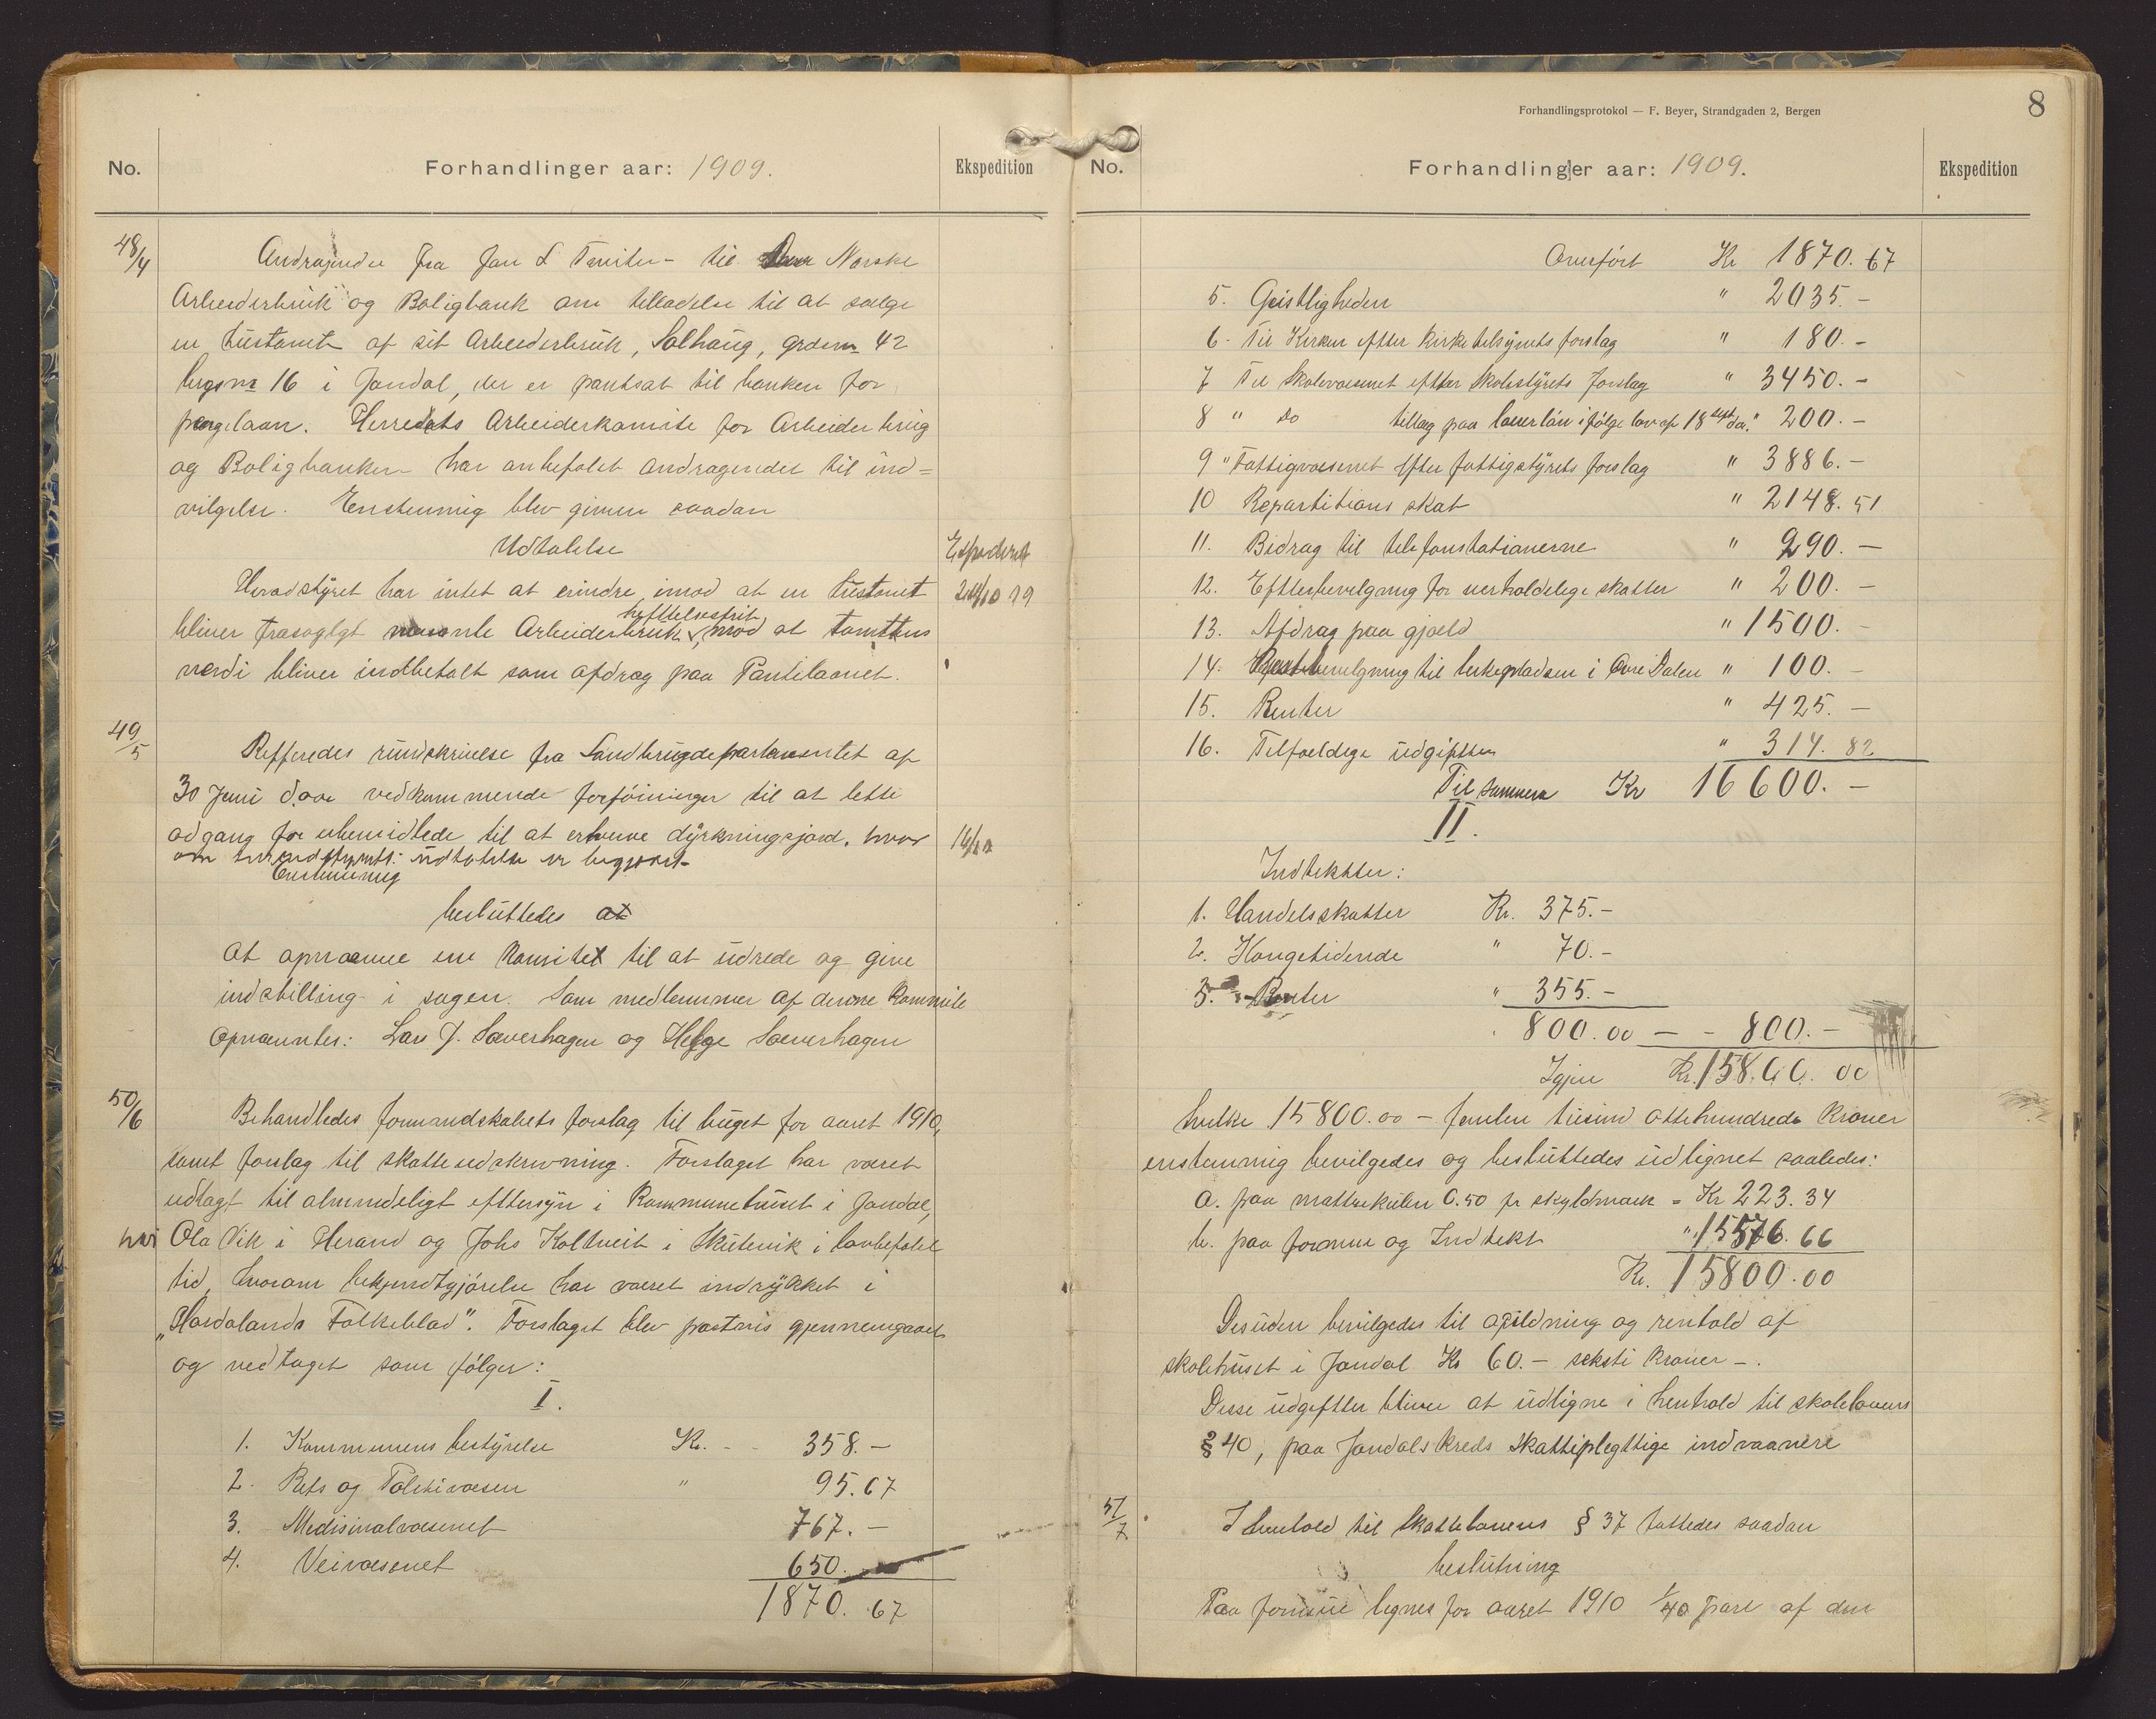 No.
Forhandlinger aar: 1909.
Ekspedition
48/4
Andragende fra Jon L Tveiten til Den Norske
Arbeiderbruk og Boligbank om tilladelse til at sælge
en hustomt af sit Arbeiderbruk, Solhaug, grdsnr 42
brgsnr 16 i Jondal, der er pantsat til banken for
pengelaan. Herredets Arbeiderkomite for Arbeiderbrug
og Boligbanken har anbefalet andragendet til ind-
vilgelse. Enstemmig blev given saadan
Udtalelse
Herredstyret har intet at erindre imod at en hustomt
bliver frasolgt Arbeiderbruk heftelsesfrit, mod at tomtens
verdi bliver indbetalt som afdrag paa Pantelaanet.
Ekspederet
49/5
Refferedes rundskrivelse fra Landbrugsdepartementet af
30 Juni d.aa. vedkommende forføininger til at lette
adgang for ubemidlede til at erhverve dyrkningsjord, hvor
om herredstyrets udtalelse er begjært
16/10
Enstemmig
besluttedes at
at opnævne en Komite til at udrede og give
indstilling i sagen. Som medlemmer af denne Kommite
opnævntes: Lars J. Sæverhagen og Helge Sæverhagen
50/6
Behandledes formandskabets forslag til buget for aaret 1910,
samt forslag til skatteudskrivning. Forslaget har været
udlagt til almindeligt eftersyn i Kommunehuset i Jondal,
hos Ola Vik i Herand og Johs Koltveit i Skutevik i lovbefalet
tid, hvorom bekjendtgjørelse har været indrykket i
"Hardalands Folkeblad". Forslaget blev postvis gjennemgaaet
og vedtaget som følger:
I.
1. Kommunens bestyrelse Kr. - 358.-
2. Rets og Politivæsen " 95.67
3. Medisinalvæsenet 767.-
4. Veivæsenet 650.
1870.67
Forhandlingsprotokol — F. Beyer, Strandgaden 2, Bergen
8
No.
Forhandlinger aar: 1909.
Ekspedition
Overført Kr 1870.67
5. Geistligheden " 2035.-
6. Til Kirken efter Kirketilsynets forslag " 180.-
7 Til Skolevæsenet efter Skolestyrets forslag " 3450.-
8 " Do tillæg paa lærerløn ifølge lov af 18 sept d.a. " 200.-
9 " Fattigvæsenet efter fattigstyrets forslag " 3886.-
10 Repartitions skat " 2148.51
11. Bidrag til telefonstationerne " 290.-
12. Efterbevilgning for uerholdelige skatter " 200.-
13. Afdrag paa gjæld " 1500.-
14. bevilgning til kirkepladsen i Øvre Dalen " 100.-
15. Renter " 425.-
16. Tilfældige udgifter " 314.82
Tilsammen Kr 16600.-
II.
Indtekter:
1. Handelsskatter Kr. 375.-
2. Kongetiende " 70.-
3. Renter " 355.-
800.00 - - 800.-
Igjen Kr. 15800.00
hvilke 15800.00 - femten tusind ottehundrede Kroner
enstemmig bevilgedes og besluttedes udlignet saaledes:
a. paa mattrekulen 0.50 pr skyldmark = Kr 223.34
b. paa formue og Indtekt " 15576.66
Kr. 15800.00
Desuden bevilgedes til opildning og renhold af
skolehuset i Jondal Kr 60.- seksti Kroner -.
Disse udgifter bliver at udligne i henhold til skolelovens
§ 40, paa Jondals Kreds skattepligttige indvaanere
51/7
I henhold til Skattelovens § 37 fattedes saadan
beslutning
Paa formue lignes for aaret 1910 1/40 part af den